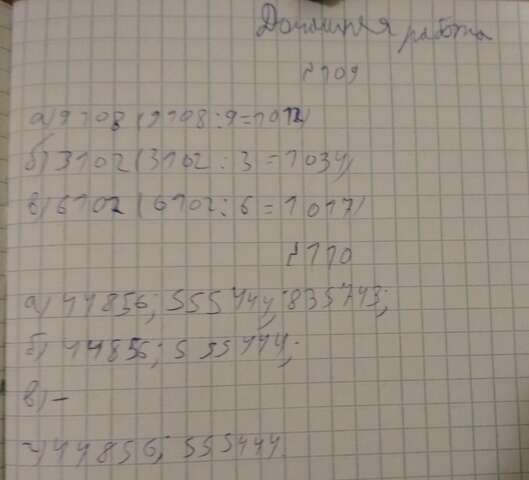 Домашняя работа
№109
а) 9108 (9108:9=1012)
б) 3102 (3102:3=1034)
в) 6102 (6102:6=1017)
№110
а) 44856; 555444; 835743;
б) 44856; 555444;
в) –
г) 44856; 555444.